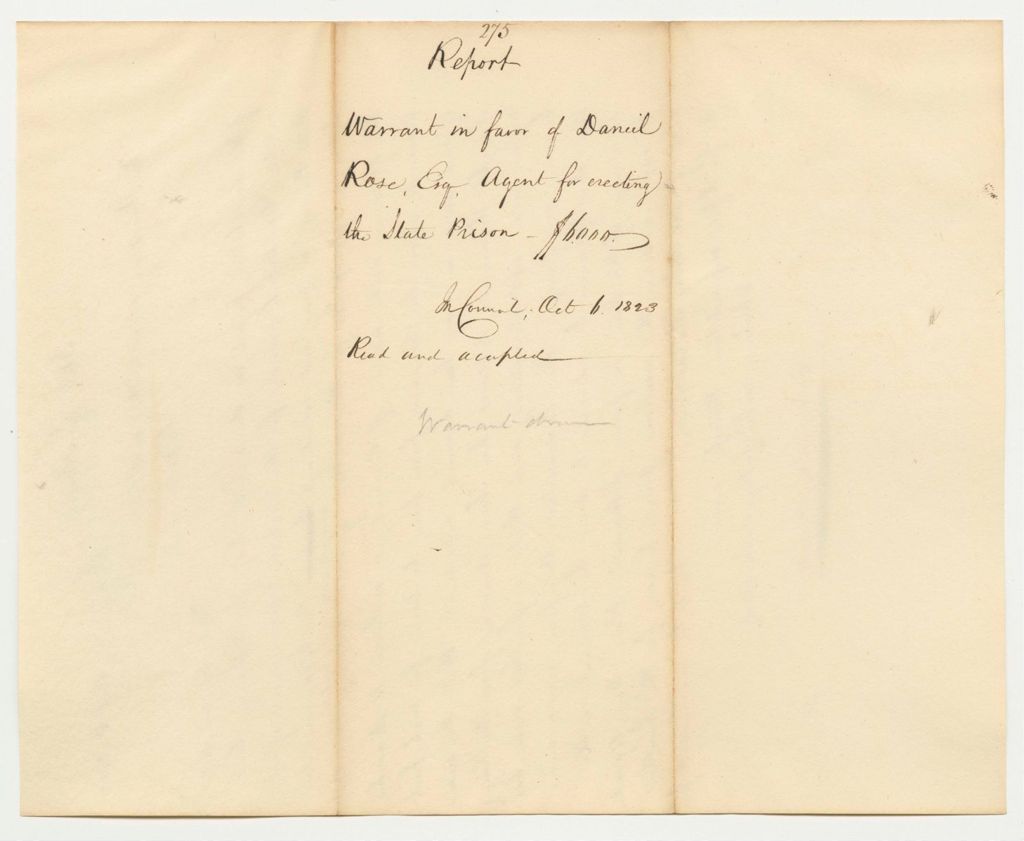 275
Report
Warrant in favor of Daniel
Rose, Esq. Agent for erecting
the State Prison - $6,000.
In Council, Oct 6. 1823
Read and accepted
Warrant drawn